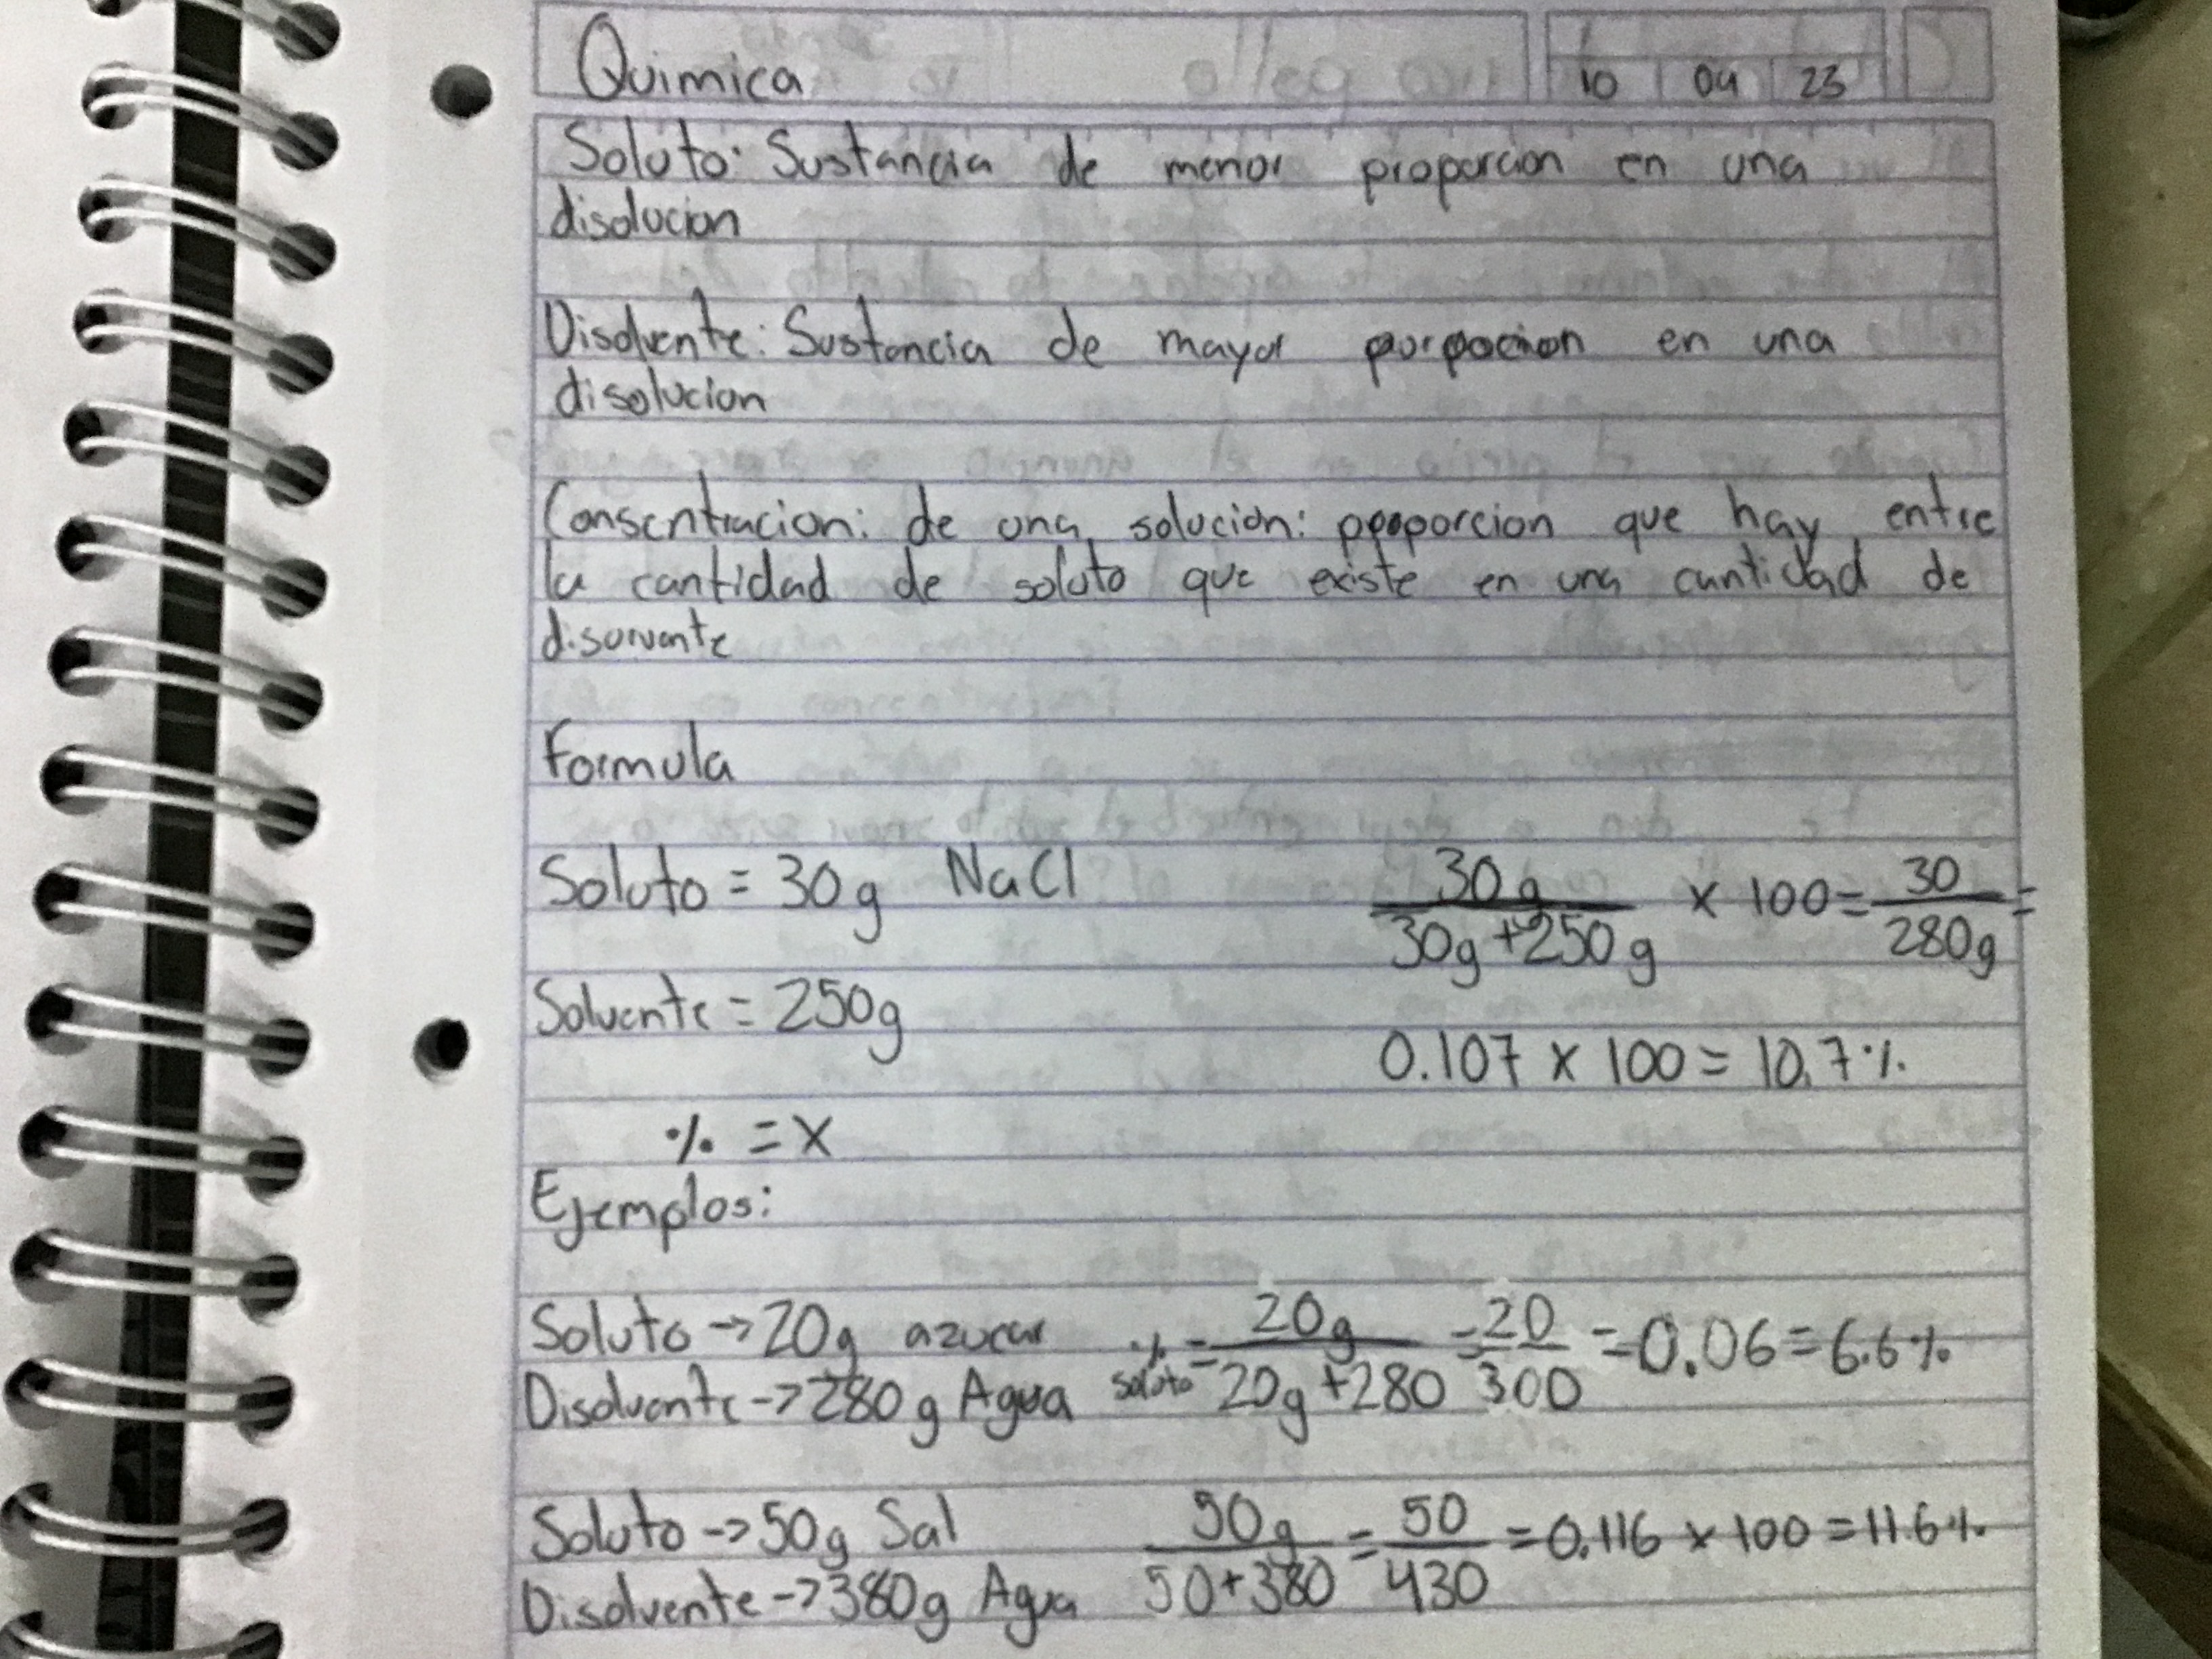 Quimica
10 04 23
Soluto: Sustancia de menor proporcion en una
disolucion
Disolvente: Sustancia de mayor porpocion en una
disolucion
Consentracion: de una solucion: proporcion que hay entre
la cantidad de soluto que existe en una cantidad de
disorvante
Formula
Soluto = 30g NaCl
30g / 30g + 250g x 100 = 30 / 280g =
Solvente = 250g
0.107 x 100 = 10.7%
% = x
Ejemplos:
Soluto → 20g azucar % soluto = 20g / 20g + 280 = 20 / 300 = 0.06 = 6.6%
Disolvente → 280g Agua
Soluto → 50g Sal 50g / 50 + 380 = 50 / 430 = 0.116 x 100 = 11.6%
Disolvente → 380g Agua